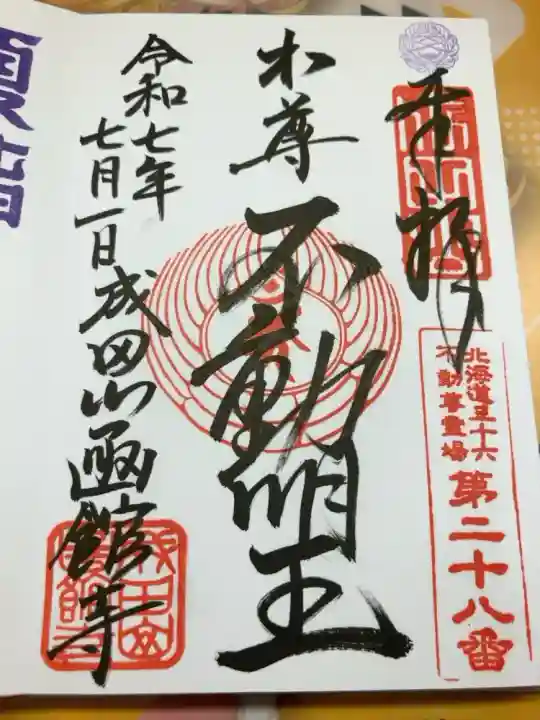 奉拝
北海道三十六
不動尊霊場
第二十八番
本尊
不動明王
令和七年
七月一日
成田山函館寺